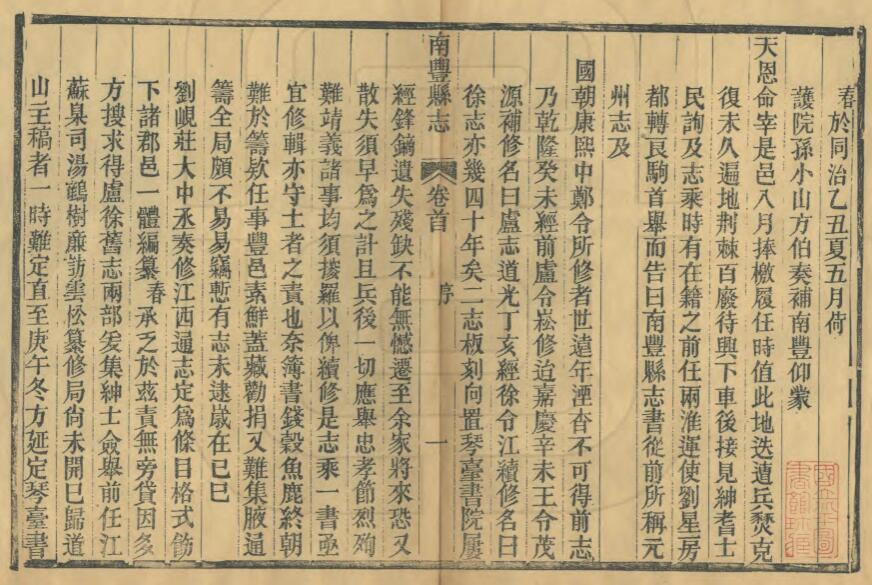 春於同治乙丑夏五月荷
護院孫小山方伯奏補南豐仰蒙
天恩命宰是邑八月捧檄履任時值此地迭遭兵燹克
復未久遍地荆棘百廢待興下車後接見紳耆士
民詢及志乘時有在籍之前任兩淮運使劉星房
都轉良駒首舉而告曰南豐縣志書從前所稱元
州志及
國朝康熙中鄭令所修者世遠年湮杳不可得前志
乃乾隆癸未經前盧令崧修迨嘉慶辛未王令茂
源補修名曰盧志道光丁亥經徐令江續修名曰
徐志亦幾四十年矣二志板刻向置琴臺書院屢
南豐縣志 卷首 序 一
經鋒鏑遺失殘缺不能無憾遷至余家將來恐又
散失須早爲之計且兵後一切應舉忠孝節烈殉
難靖義諸事均須搜羅以俾續修是志乘一書亟
宜修輯亦守土者之責也奈簿書錢穀魚鹿終朝
難於籌欵任事豐邑素鮮蓋藏勸捐又難集腋通
籌全局頗不易易竊慙有志未逮歲在己巳
劉峴莊大中丞奏修江西通志定爲條目格式飭
下諸郡邑一體編纂春承乏於茲責無旁貸因多
方搜求得盧徐舊志兩部爰集紳士僉舉前任江
蘇臬司湯鶴樹廉訪雲松纂修局尚未開巳歸道
山主稿者一時難定直至庚午冬方延定琴臺書